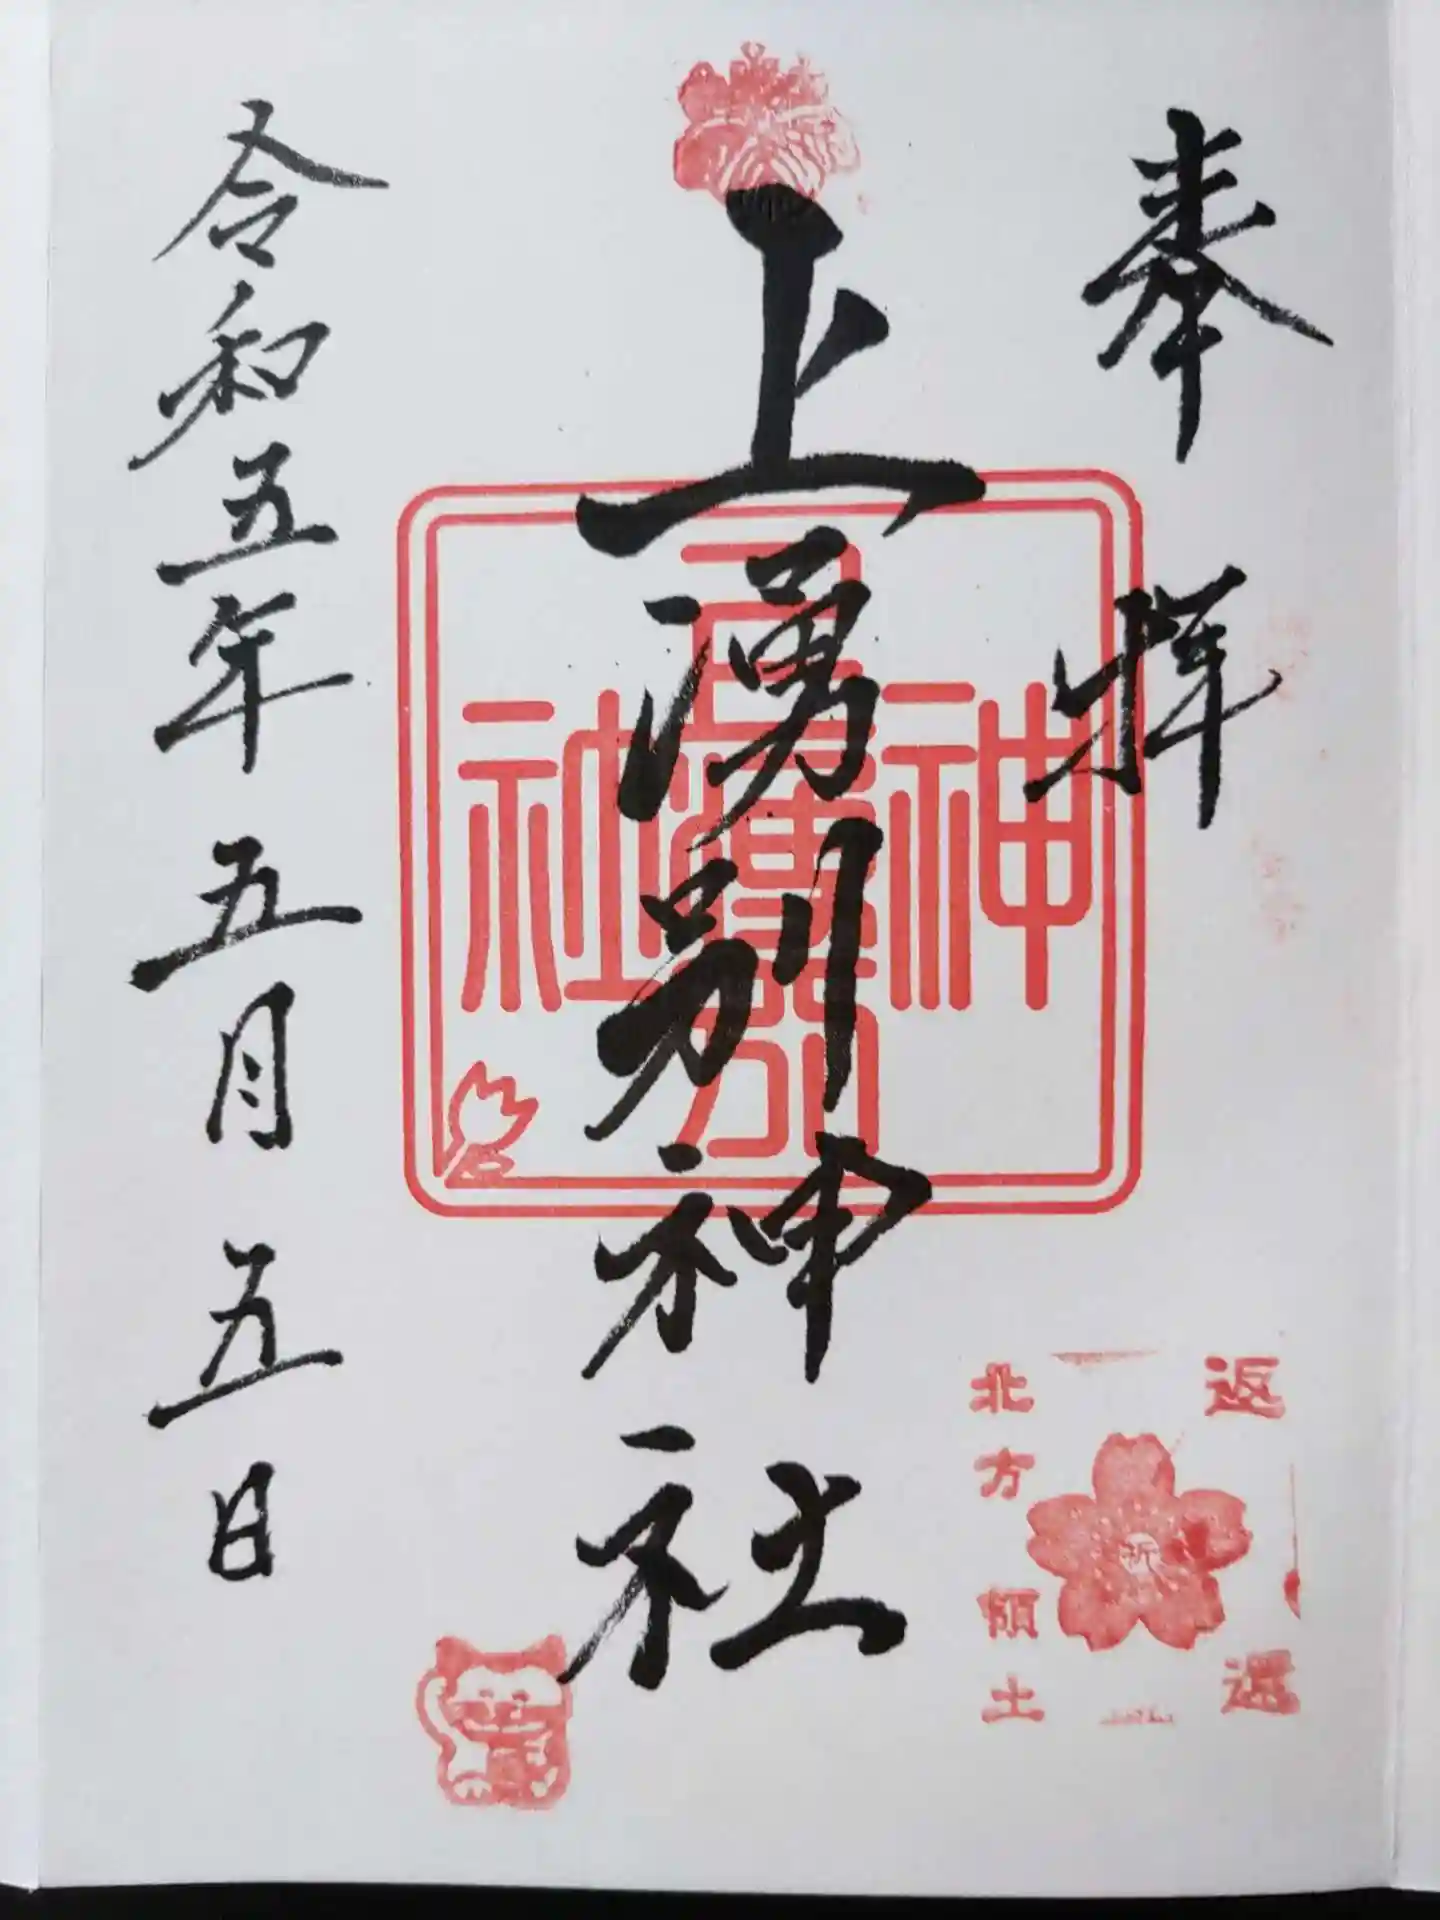 奉拝
上湧別神社
令和五年五月五日
上湧別
神
社
返還
祈
北方領土